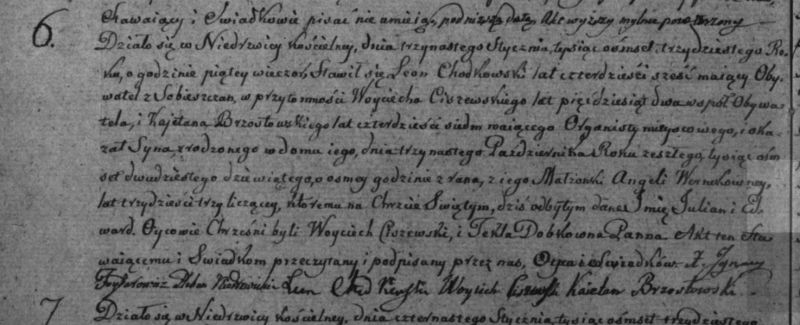 Stawaiący i Swiadkowie pisać nie umieią, podniższą datą Akt wyższy mylnie powtórzony
6. Działo się w Niedrzwicy kościelney, dnia trzynastego Stycznia, tysiąc ośmset trzydziestego Ro-
ku, o godzinie piątey wieczór, Stawił się Leon Chodkowski lat czterdzieści sześć maiący Oby-
watel z Sobieszczan, w przytomności Woyciecha Ciszewskiego lat pięćdziesiąt dwa wspól Obywa-
tela, i Kajetana Brzostowskiego lat czterdzieści siedm maiącego Organisty mieyscowego, i oka-
zał Syna zrodzonego w domu iego, dnia trzynastego Pazdziernika Roku zeszłego, tysiąc ośm-
set dwudziestego dziewiątego, o osmey godzinie z rana, z iego Małżonki Angeli
lat trzydzieści trzy liczącey, któremu na Chrzcie Swiętym, dziś odbytym dane Imię Julian i Ed-
ward. Oycowie Chrzesni byli Woyciech Ciszewski, i Tekla Dobkowna Panna. Akt ten Sta-
waiącemu i Swiadkom przeczytany i podpisany przez nas, Oyca i Swiadków. X. Ignacy
Leon Chodkowski Woyciech Ciszewski Kaietan Brzostowski
7 Działo się w Niedrzwicy kościelney, dnia czternastego Stycznia, tysiąc ośmset trzydziestego